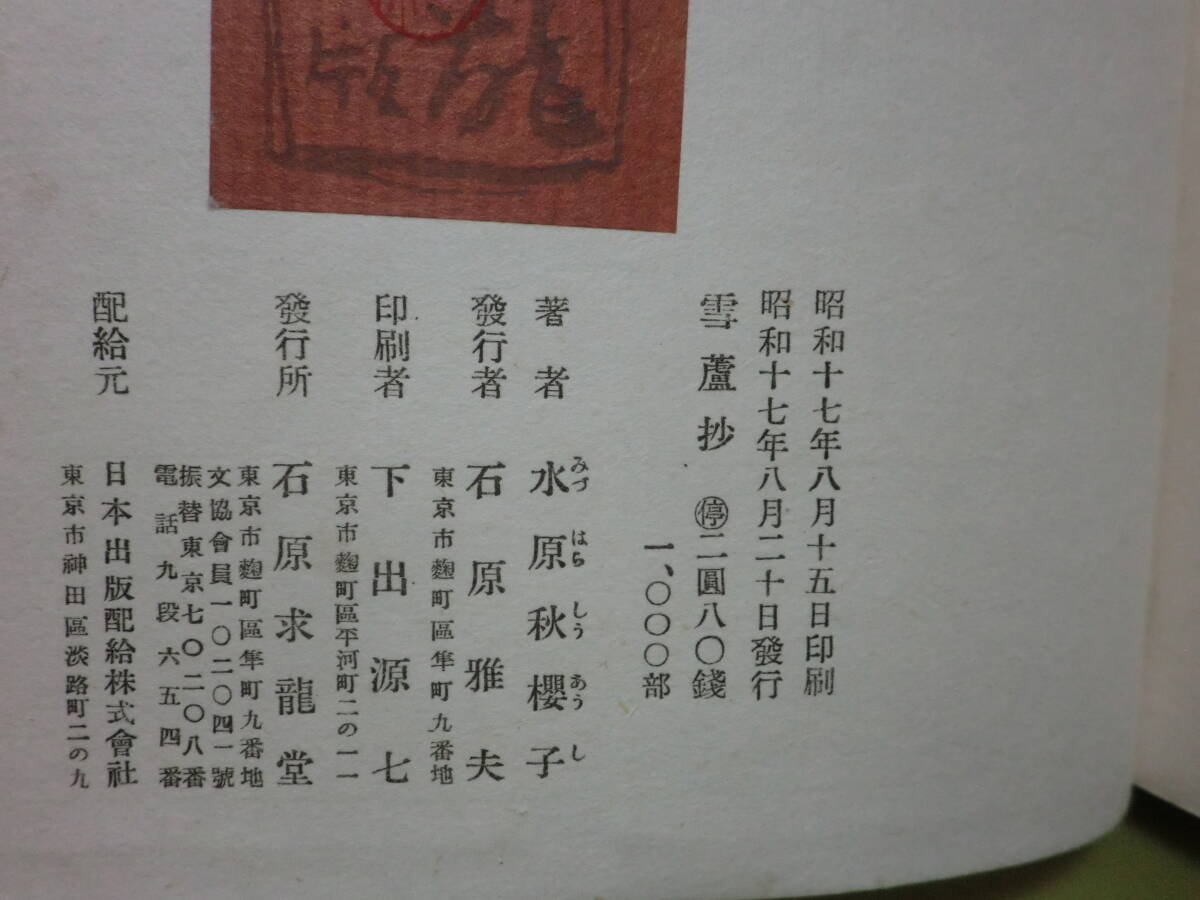 昭和十七年八月十五日印刷
昭和十七年八月二十日發行
雪蘆抄 ㊡二圓八〇錢
一、〇〇〇部
著者 水原秋櫻子
みづ はら しう あう し
發行者 石原雅夫
東京市麴町區隼町九番地
印刷者 下出源七
東京市麴町區平河町二の一一
發行所 石原求龍堂
東京市麴町區隼町九番地
文協會員一〇二〇四一號
振替東京七〇二〇八番
電話九段六五四番
配給元 日本出版配給株式會社
東京市神田區淡路町二の九